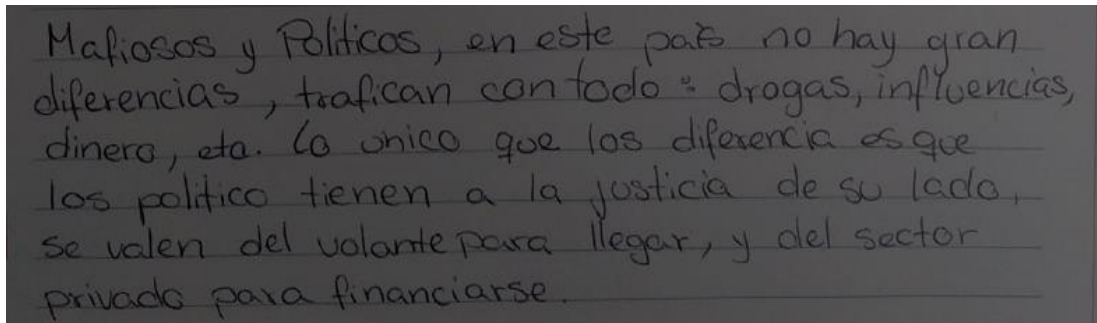 Mafiosos y Politicos, en este país no hay gran
diferencias, trafican con todo: drogas, influencias,
dinero, etc. lo unico que los diferencia es que
los politico tienen a la justicia de su lado,
se valen del volante para llegar, y del sector
privado para financiarse.